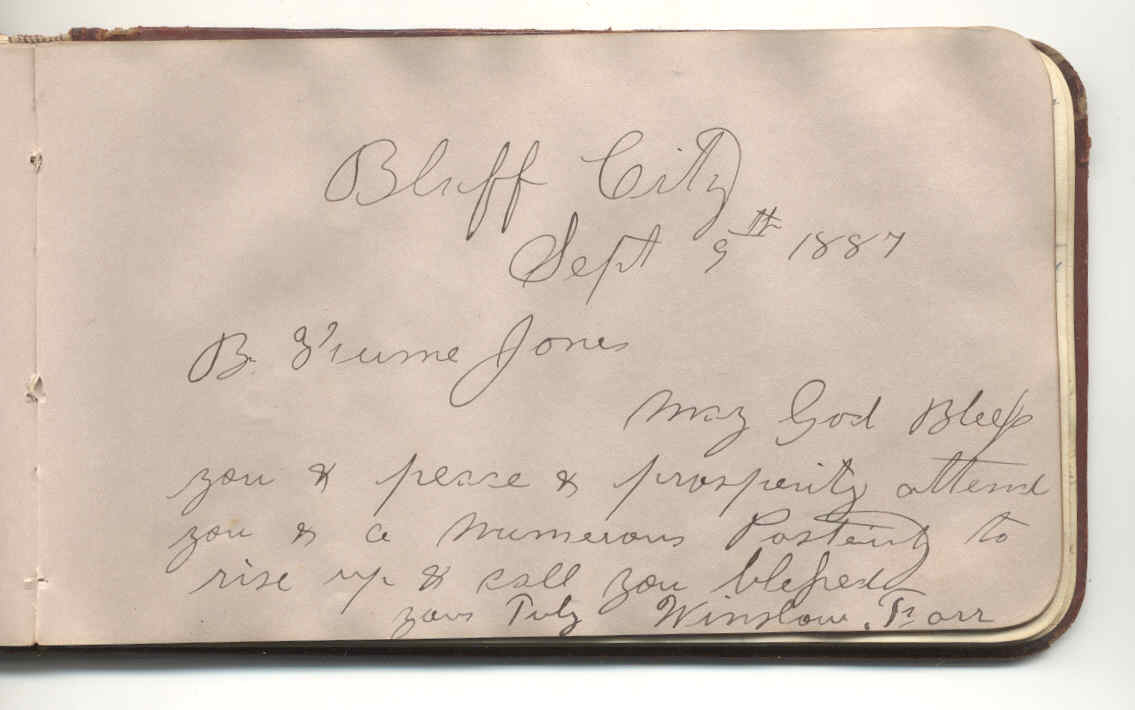 Bluff City
Sept 9th 1887
B. Jones
May God Bless
you & peace & prosperity attend
you & a numerous Posterity to
rise up & call you blessed
yours Truly Winslow. Farr